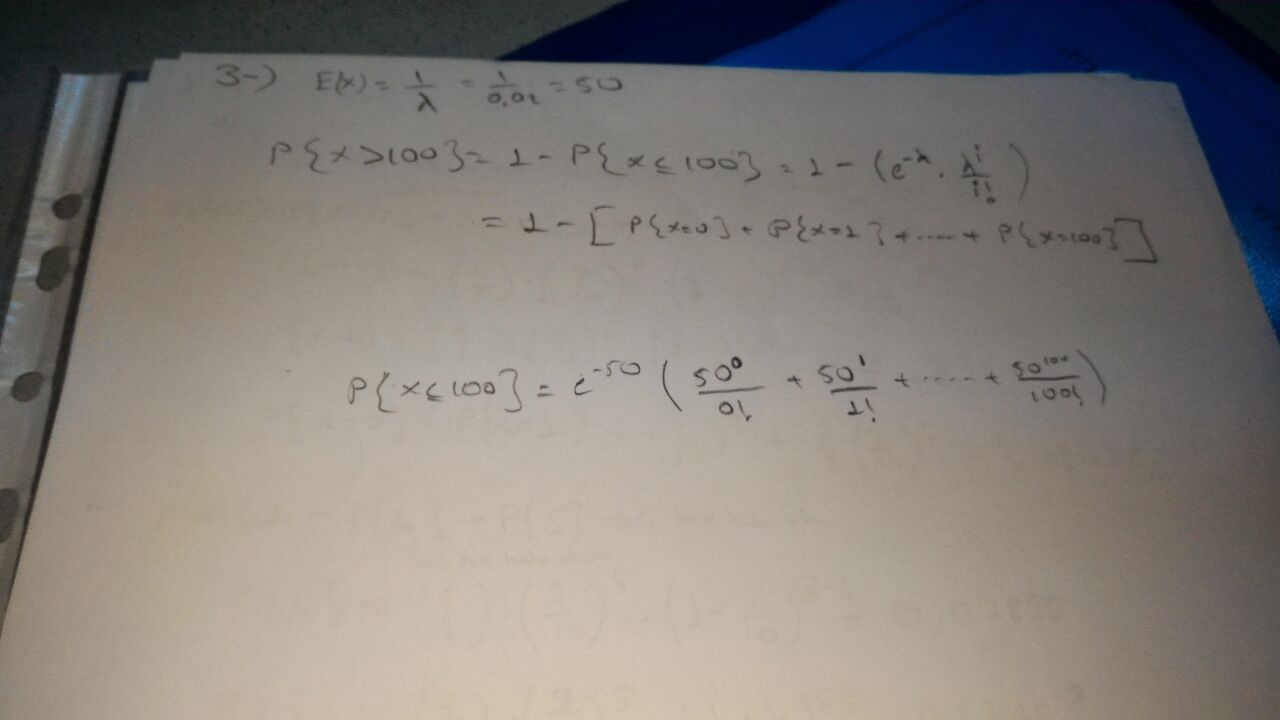 3-) E(x) = 1/λ = 1/0,02 = 50
P{x>100} = 1 - P{x≤100} = 1 - (e^-λ . λ^i/i!)
= 1 - [P{x=0} + P{x=1} + ..... + P{x=100}]
P{x≤100} = e^-50 (50^0/0! + 50^1/1! + ..... + 50^100/100!)